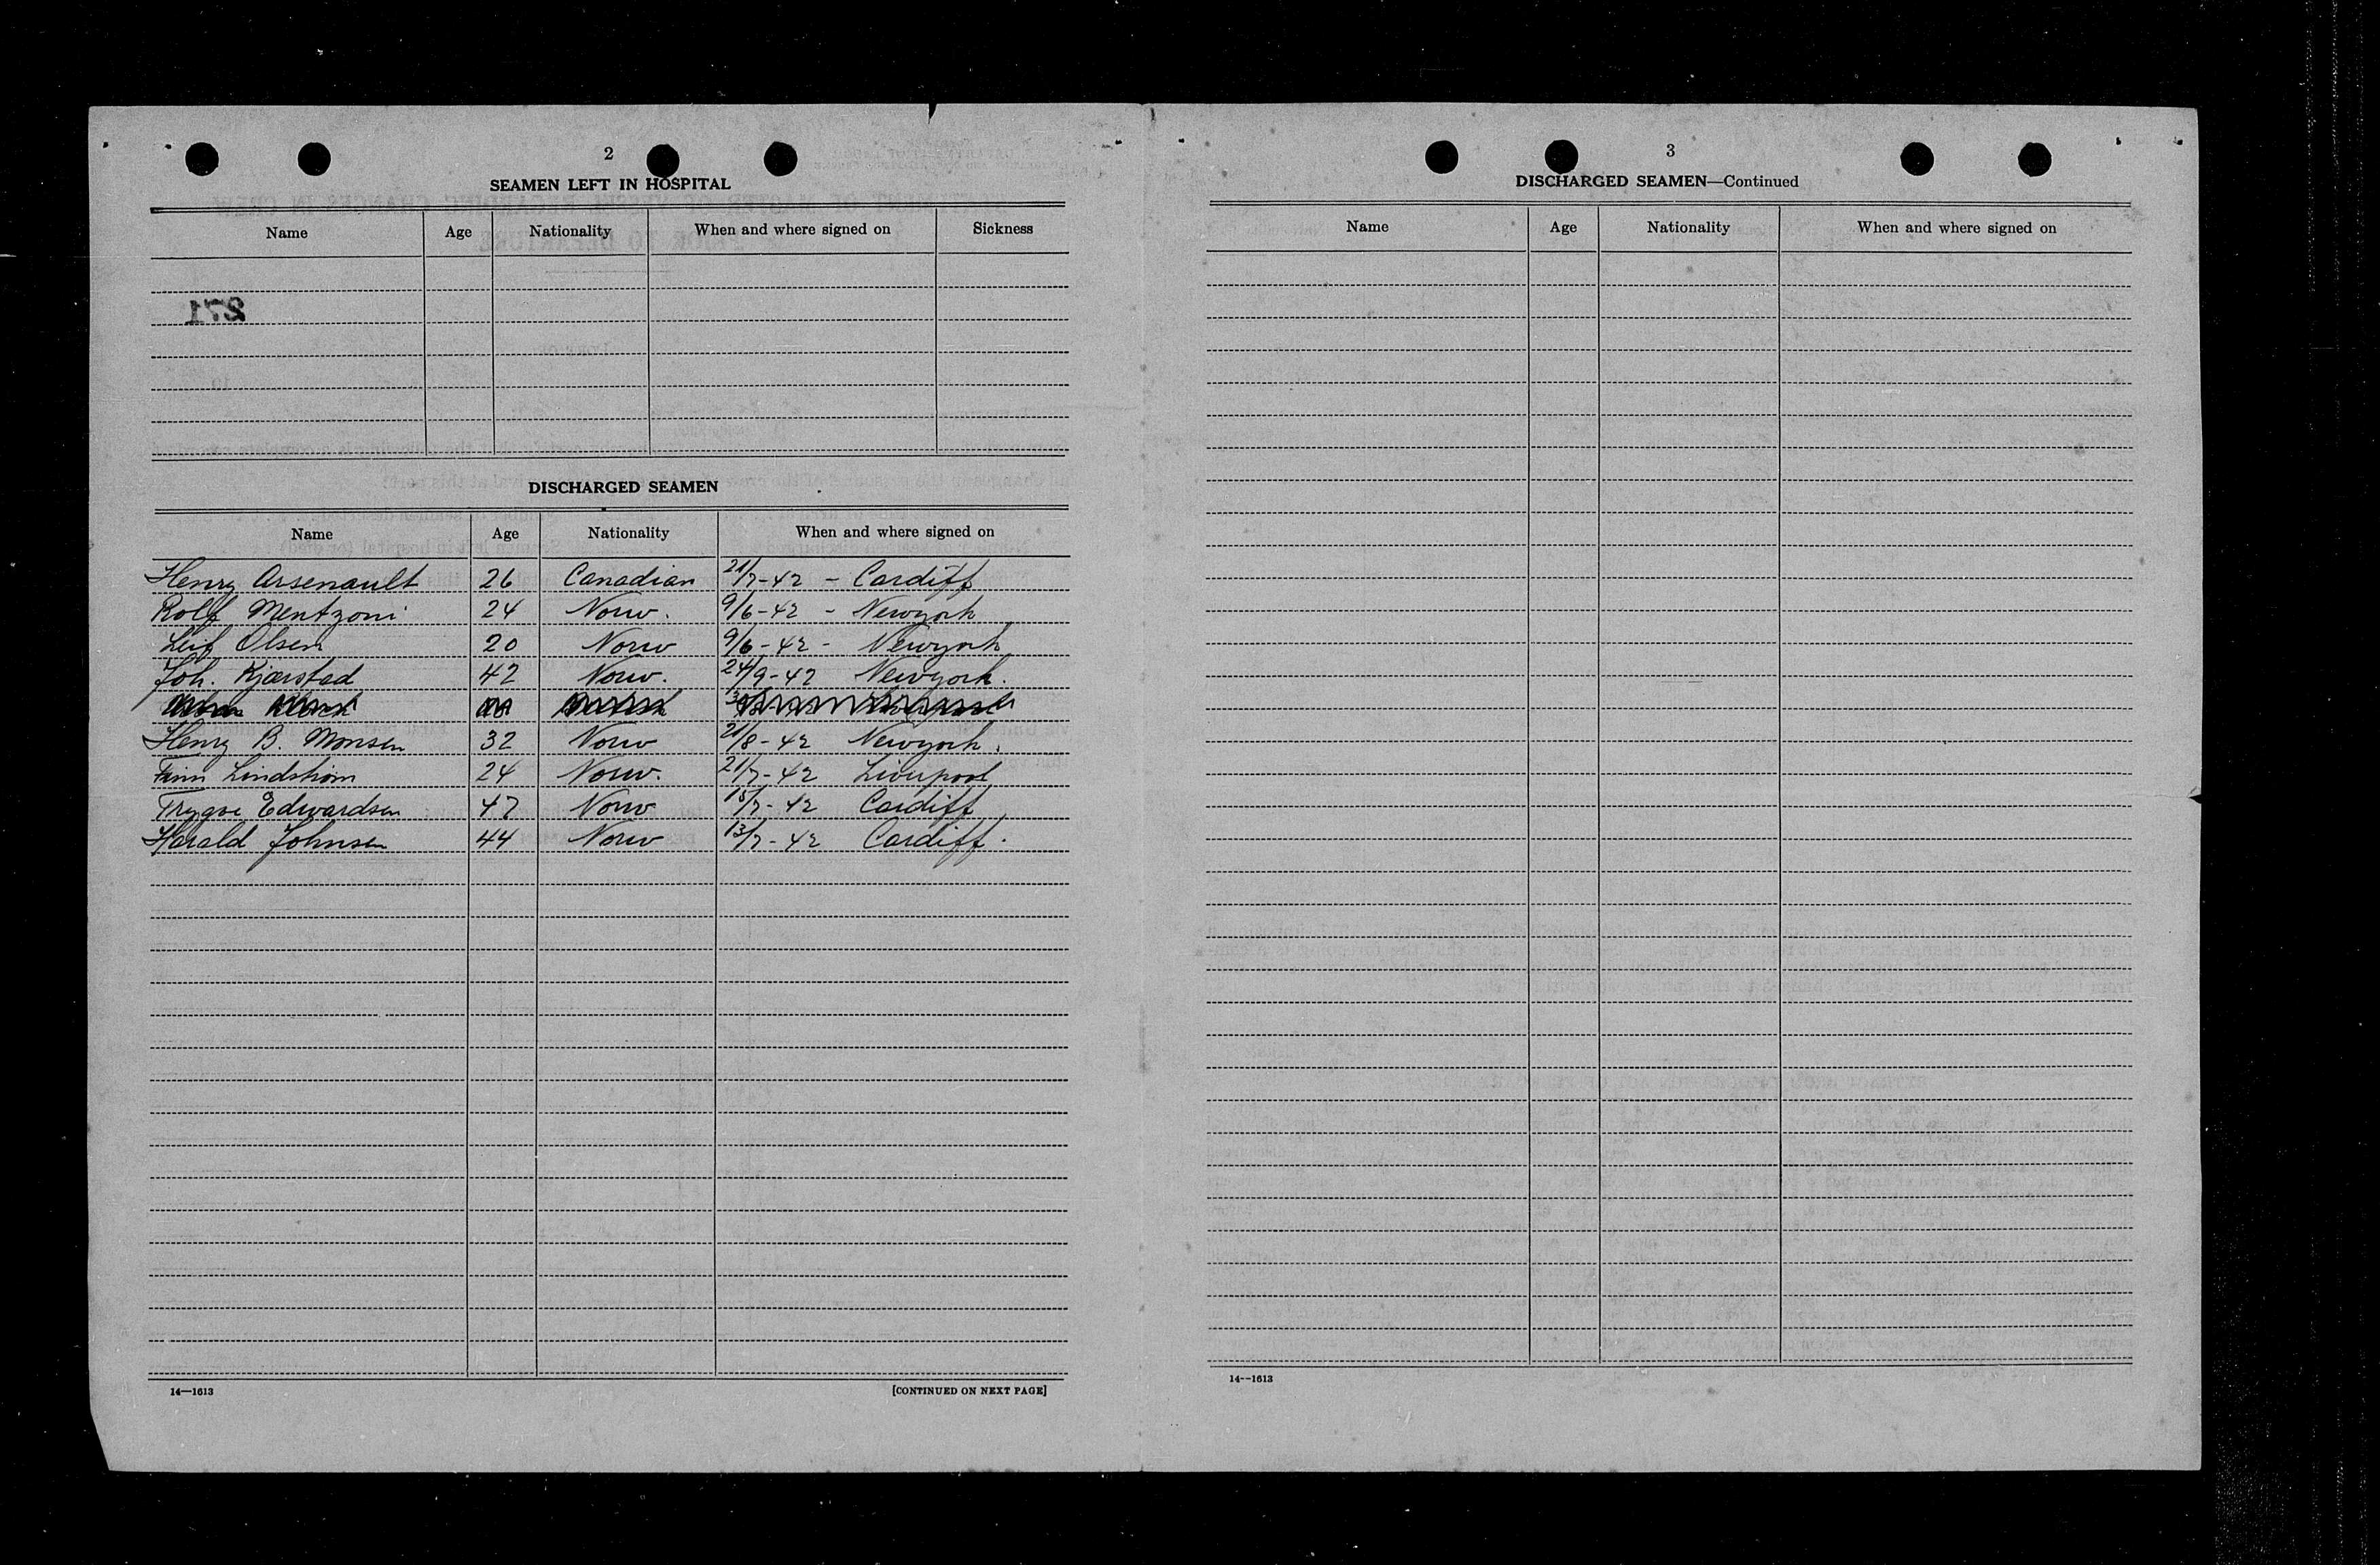 2
SEAMEN LEFT IN HOSPITAL
Name Age Nationality When and where signed on Sickness
271
DISCHARGED SEAMEN
Name Age Nationality When and where signed on
Henry Arsenault 26 Canadian 21/7-42 - Cardiff
Rolf Mentzoni 24 Norw. 9/6-42 - Newyork
Leif Olsen 20 Norw 9/6-42 - Newyork
Joh. Kjærstad 42 Norw. 24/9-42 Newyork.
Henry B. Monsen 32 Norw 21/8-42 Newyork.
Finn Lindstrøm 24 Norw. 21/7-42 Liverpool
Trygve Edwardsen 47 Norw 15/7-42 Cardiff
Harald Johnsen 44 Norw 13/7-42 Cardiff.
14—1613 [CONTINUED ON NEXT PAGE]
3
DISCHARGED SEAMEN—Continued
Name Age Nationality When and where signed on
14--1613